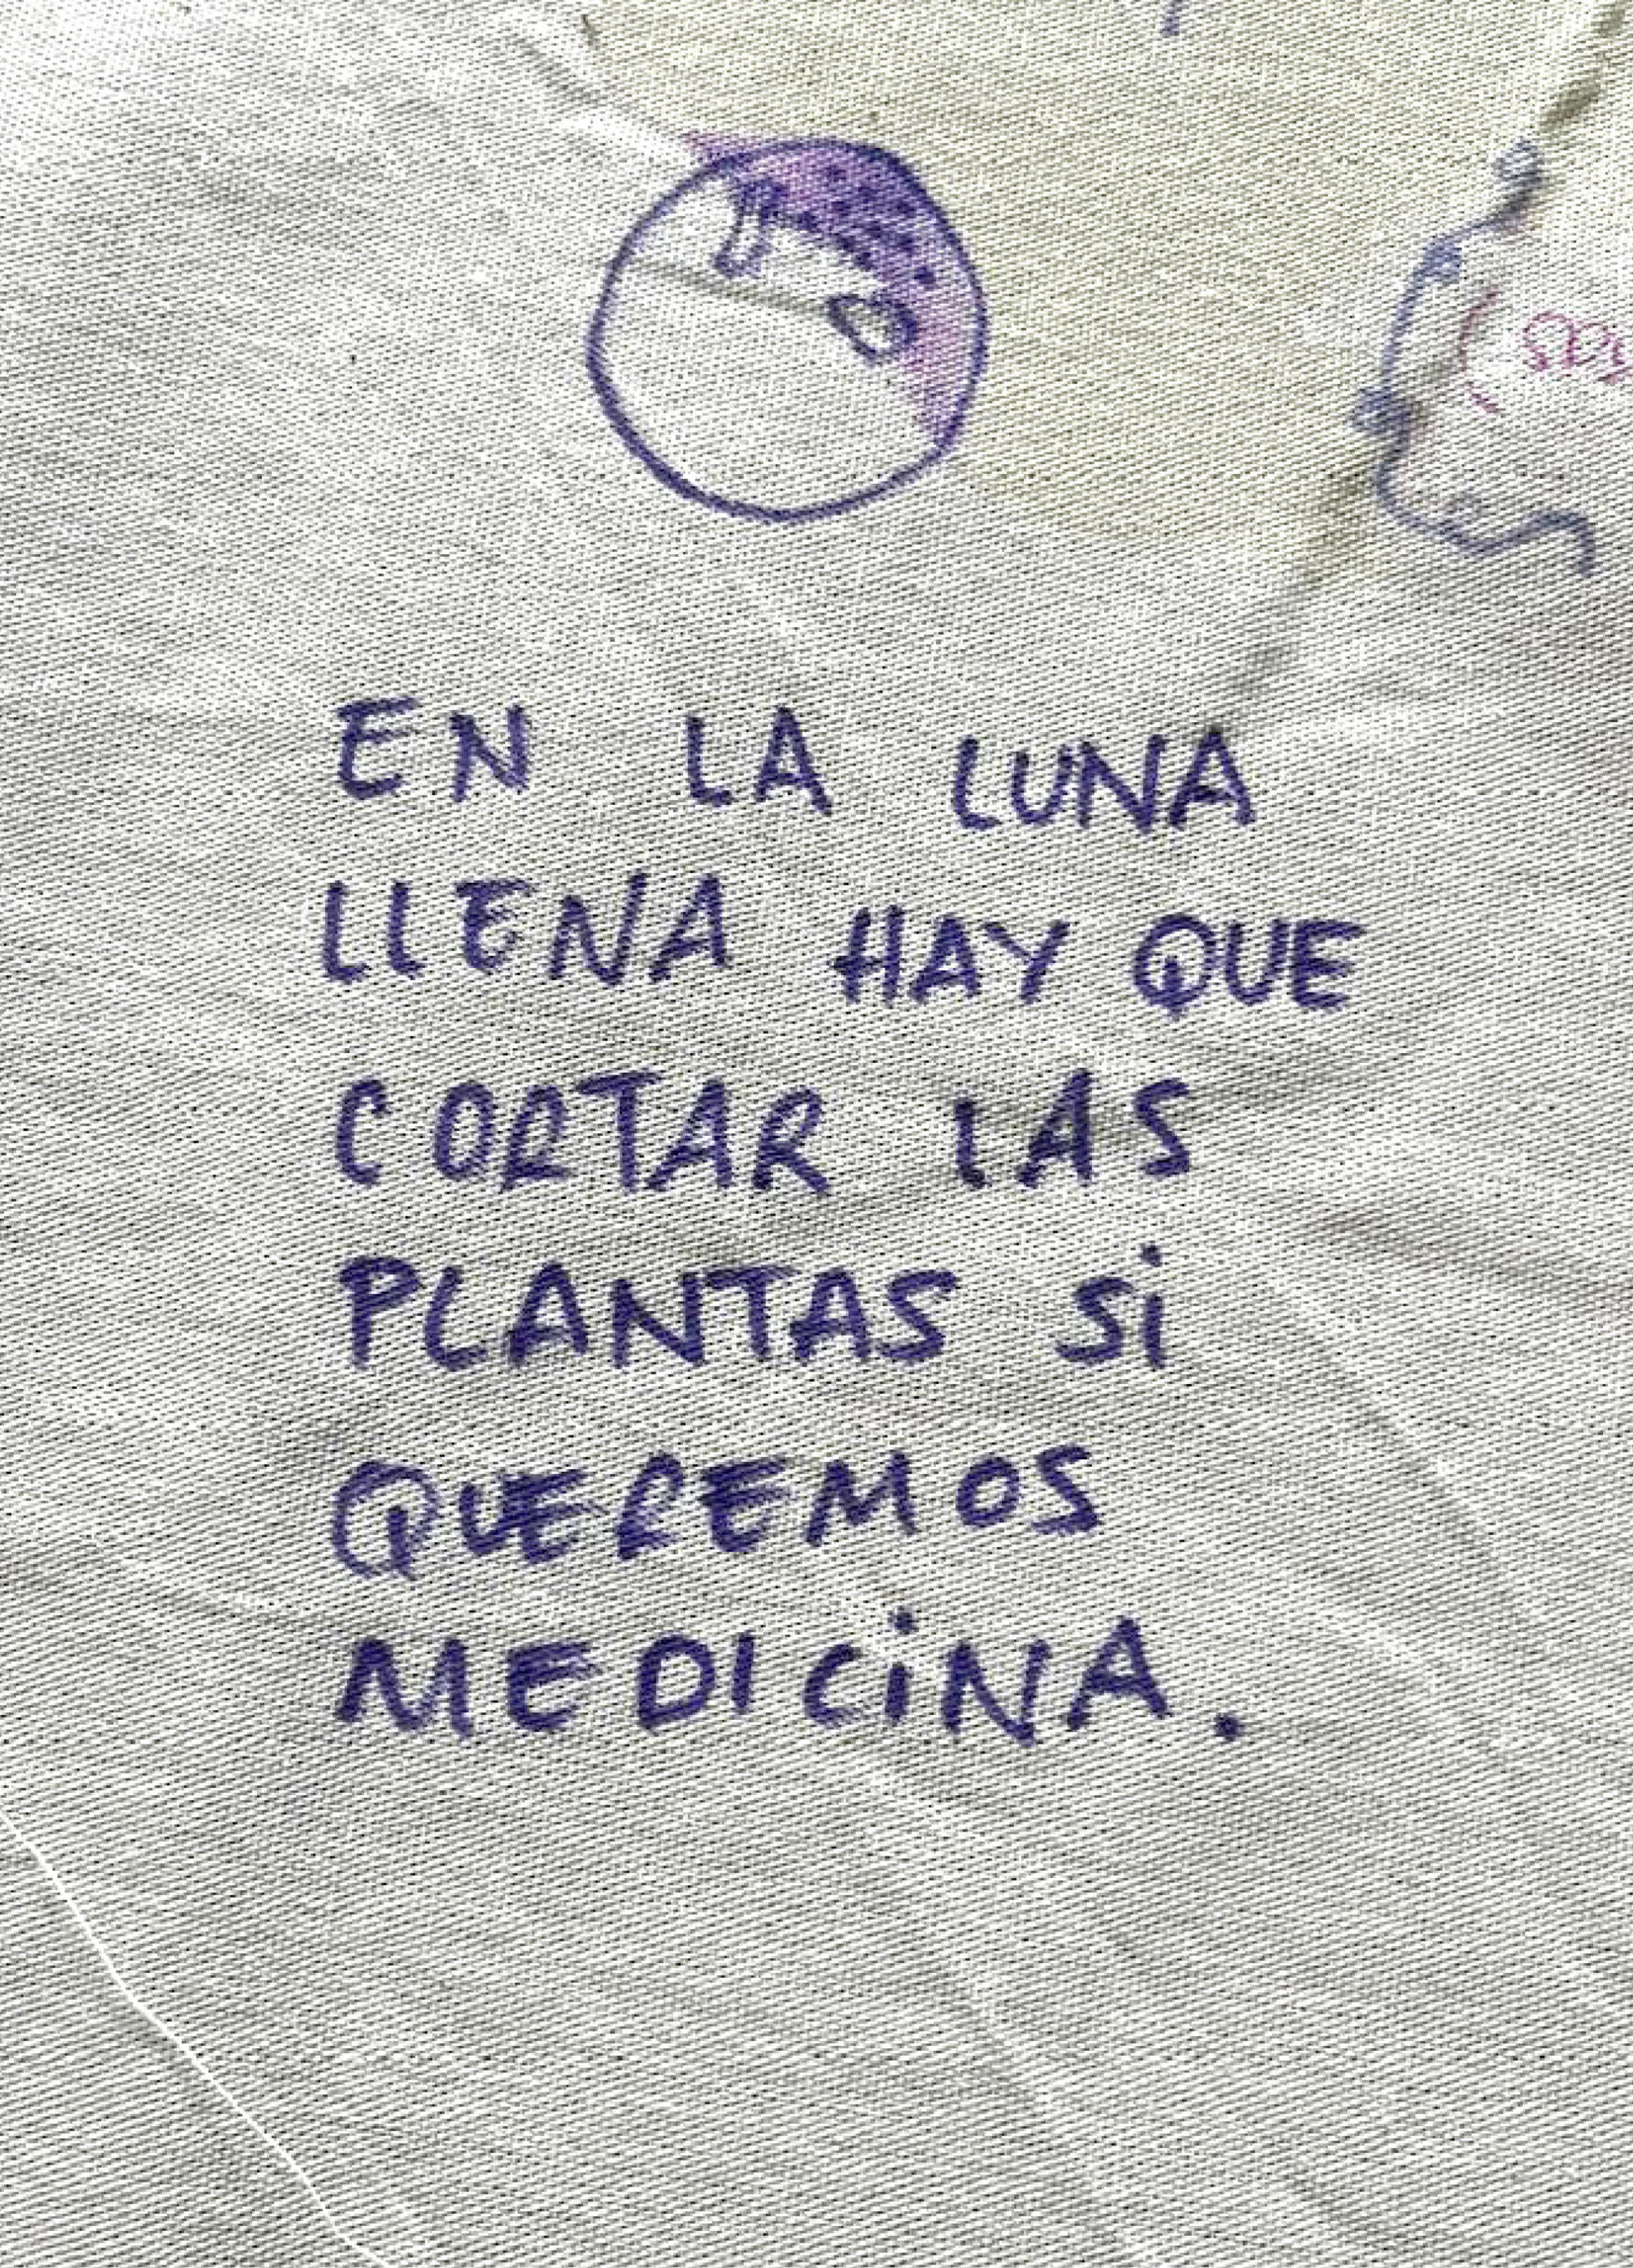 EN LA LUNA
LLENA HAY QUE
CORTAR LAS
PLANTAS Si
QUEREMOS
MEDICiNA.